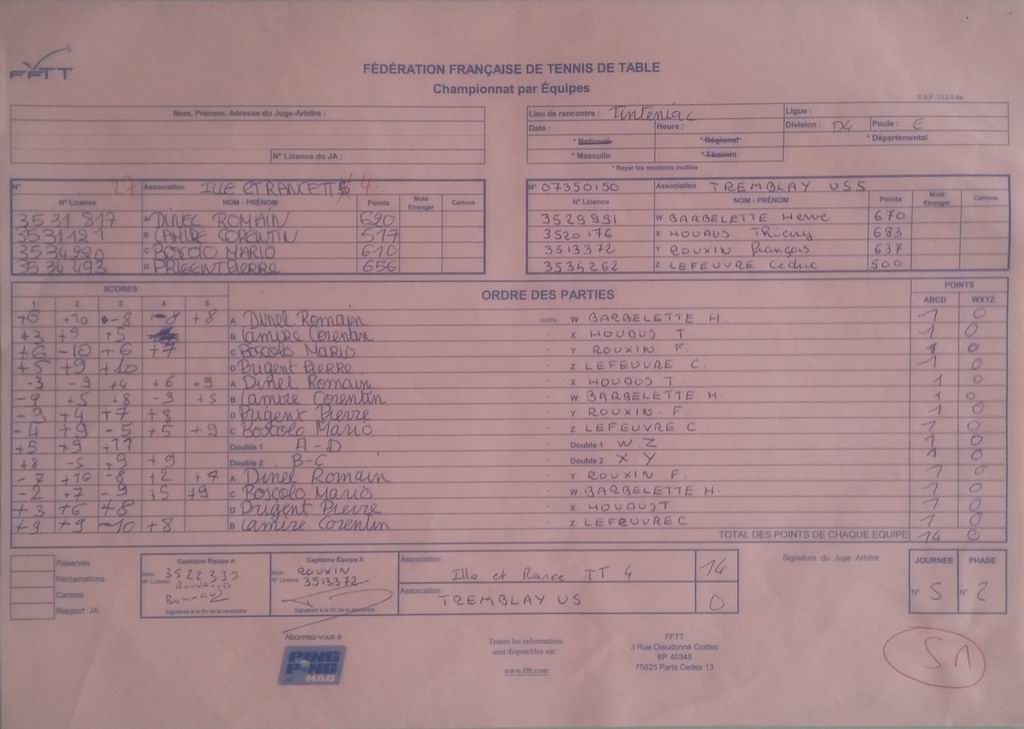 FFTT
FÉDÉRATION FRANÇAISE DE TENNIS DE TABLE
Championnat par Équipes
Nom, Prénom, Adresse du Juge-Arbitre :
N° Licence du JA :
Lieu de rencontre : Tinténiac Ligue :
Date : Heure: Division : D4 Poule : E
* National * Régional * Départemental
* Masculin * Féminin
* Rayer les mentions inutiles
N° Association ILLE ET RANCE TT 4
N° Licence NOM - PRÉNOM Points Muté Etranger Cartons
3531 817 A DINEL ROMAIN 620
3531121 B LAMIRE CORENTIN 517
3534220 C BOSCOLO MARIO 610
3534 493 D PRIGENT PIERRE 656
N° 07350150 Association TREMBLAY US 5
N° Licence NOM - PRÉNOM Points Muté Etranger Cartons
3529991 W BARBELETTE Herve 670
3520176 X HOUDUS Thierry 683
3513372 Y ROUXIN François 637
3534262 Z LEFEUVRE Cedric 500
SCORES ORDRE DES PARTIES POINTS
1 2 3 4 5 ABCD WXYZ
+6 +10 -8 -8 +8 A Dinel Romain contre W BARBELETTE H. 1 0
+3 +9 +5 B Lamire Corentin X HOUDUS T. 1 0
+6 -10 +6 +7 C Boscolo MARIO Y ROUXIN F. 1 0
+5 +9 +10 D Prigent PIERRE Z LEFEUVRE C. 1 0
-3 -9 +4 +6 +9 A Dinel Romain X HOUDUS T. 1 0
-9 +5 +8 -9 +5 B Lamire Corentin W BARBELETTE H. 1 0
-9 +4 +7 +8 D Prigent Pierre Y ROUXIN. F. 1 0
-4 +9 -5 +5 +9 C Boscolo MARIO Z LEFEUVRE C 1 0
+5 +9 +11 Double 1 A-D Double 1 W.Z 1 0
+8 -5 +9 +9 Double 2 B-C Double 2 X.Y 1 0
-7 +10 -8 +2 +7 A Dinel Romain Y ROUXIN F. 1 0
-2 +7 -9 +5 +9 C Boscolo Mario W BARBELETTE H. 1 0
+3 +6 +8 D Prigent Pierre X HOUDUS T 1 0
+9 +9 -10 +8 B Lamire Corentin Z LEFEUVRE C 1 0
TOTAL DES POINTS DE CHAQUE EQUIPE 14 0
Réserves
Réclamations
Cartons
Rapport JA
Capitaine Équipe A
Nom
N° Licence 3522 333
Signature à la fin de la rencontre
Capitaine Équipe X
Nom ROUXIN
N° Licence 3513372
Signature à la fin de la rencontre
Association Ille et Rance TT 4 14
Association TREMBLAY US 0
Signature du Juge Arbitre
JOURNEE PHASE
N° 5 N° 2
Abonnez-vous à
PING PONG MAG
Toutes les informations
sont disponibles sur :
www.fftt.com
FFTT
3 Rue Dieudonné Costes
BP 40348
75625 Paris Cedex 13
51